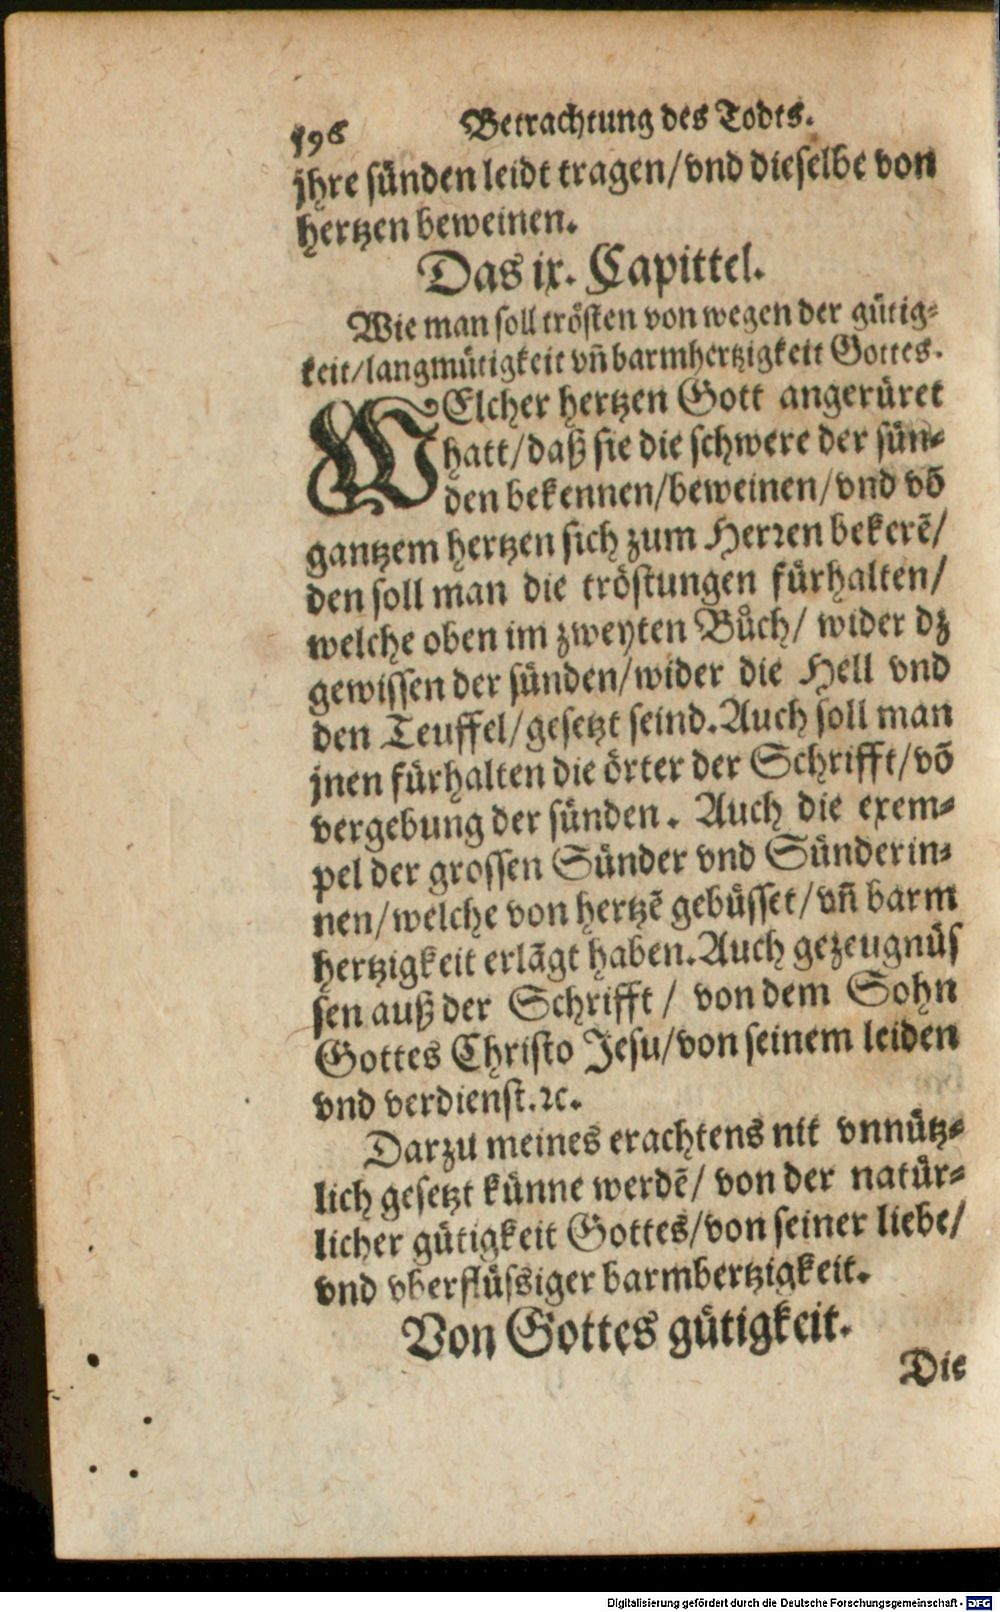 196 Betrachtung des Todts.
jhre sünden leidt tragen/vnd dieselbe von
hertzen beweinen.
Das ix. Capittel.
Wie man soll trösten von wegen der gütig-
keit/langmütigkeit vñ barmhertzigkeit Gottes.
WElcher hertzen Gott angerüret
hatt/daß sie die schwere der sün-
den bekennen/beweinen/vnd võ
gantzem hertzen sich zum Herren bekerẽ/
den soll man die tröstungen fürhalten/
welche oben im zweyten Bůch/ wider dz
gewissen der sünden/wider die Hell vnd
den Teuffel/gesetzt seind. Auch soll man
jnen fürhalten die örter der Schrifft/võ
vergebung der sünden. Auch die exem-
pel der grossen Sünder vnd Sünderin-
nen/welche von hertzẽ gebüsset/vñ barm
hertzigkeit erlãgt haben. Auch gezeugnüs
sen auß der Schrifft/ von dem Sohn
Gottes Christo Jesu/von seinem leiden
vnd verdienst.ꝛc.
Darzu meines erachtens nit vnnütz-
lich gesetzt künne werdẽ/ von der natür-
licher gütigkeit Gottes/von seiner liebe/
vnd vberflüssiger barmbertzigkeit.
Von Gottes gütigkeit.
Die
Digitalisierung gefördert durch die Deutsche Forschungsgemeinschaft - DFG